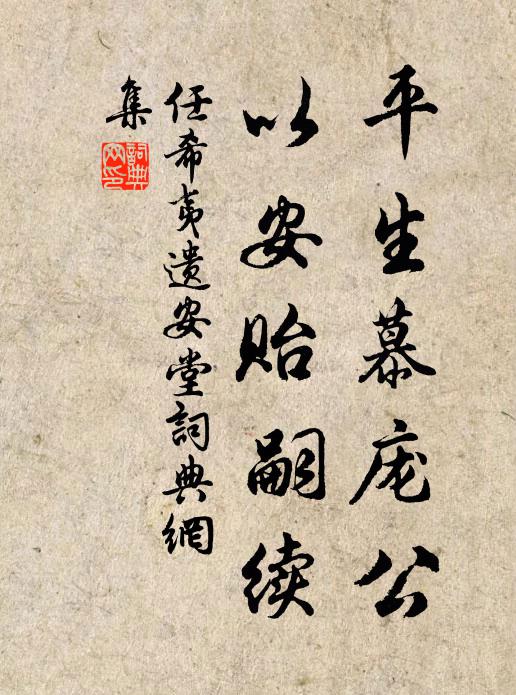 平生慕庞公
以安贻嗣续
任希夷遗安堂詞典網
集
詞典
网印